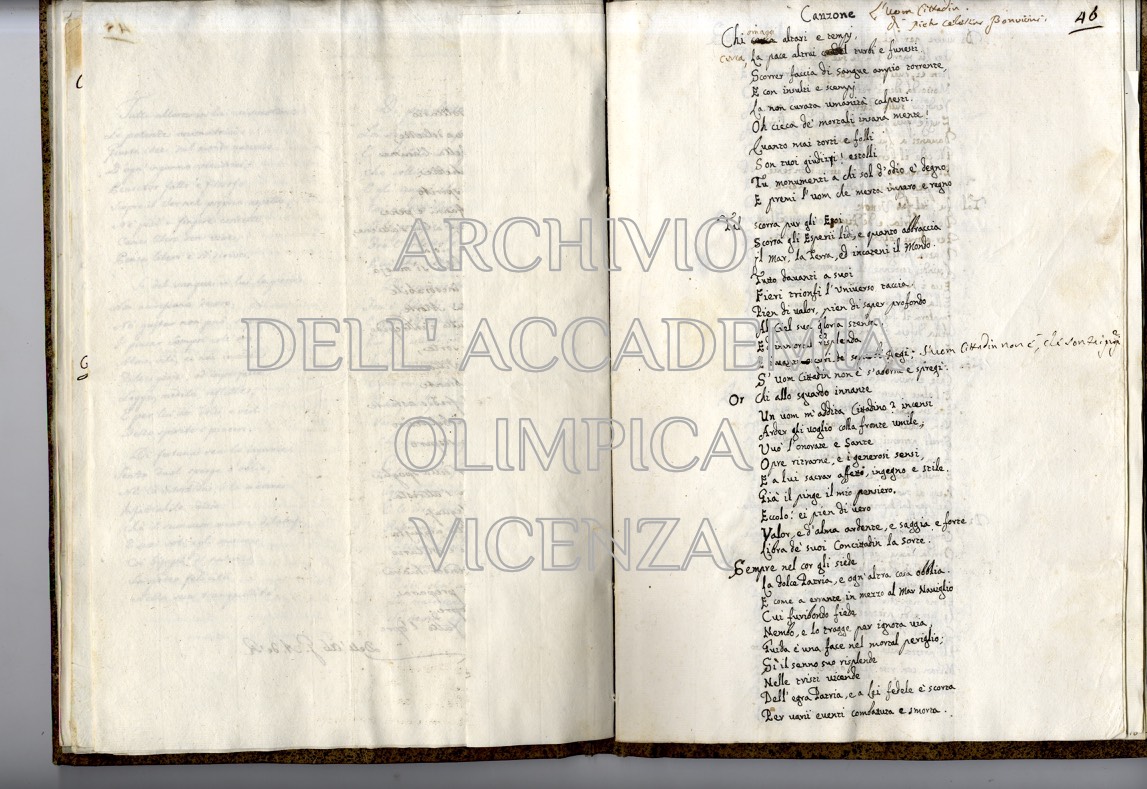 Canzone
L'uom Cittadin.
di Piet. Celestin Bonvicini.
46
Chi altari e tempj,
cerca, La pace altrui turbi e funesti
Scorrer faccia di sangue ampio torrente,
E con insulti e scempj
La non curata umanità calpesti.
Oh cieca de' mortali insana mente!
Quanto mai torti e folli
Son tuoi giudizj! estolli
Tu monumenti a chi sol d'odio è degno,
E premi l'uom che merta impero e regno
scorra pur gli Eoi
Scorra gli Esperii lidi, e quanto abbraccia
Il Mar, la Terra, ed incateni il Mondo.
Tutto davanti a suoi
Fieri trionfi l'Universo taccia.
Pien di valor, pien di saper profondo
Al Ciel sua gloria stenda
Ed immortal risplenda
S'uom Cittadin non è, che son tai pregi
S'uom Cittadin non è s'adorna e spregi.
Or Chi allo sguardo innante
Un uom m'addita Cittadino? incensi
Arder gli voglio colla fronte umile;
Vuo' l'onorate e sante
Opre ritrarne, e i generosi sensi,
E a lui sacrar affetti, ingegno e stile.
Già il pinge il mio pensiero.
Eccolo: ei pien di vero
Valor, e d'alma ardente, e saggia e forte
Libra de' suoi Concittadin la sorte.
Sempre nel cor gli siede
La dolce Patria, e ogn'altra cosa obblia.
E come a errante in mezzo al Mar Naviglio
Cui furibondo fiede
Nembo, e lo tragge per ignota via,
Guida è una face nel mortal periglio;
Sì il senno suo risplende
Nelle tristi vicende
Dell'egra Patria, e a lei fedele è scorta
Per varii eventi combattuta e smorta.
ARCHIVIO
DELL'ACCADEMIA
OLIMPICA
VICENZA